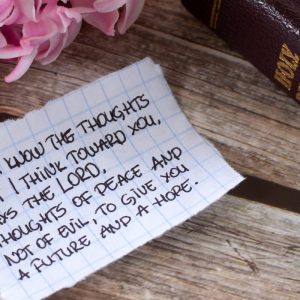 KNOW THE THOUGHTS
I THINK TOWARD YOU,
THE LORD,
THOUGHTS OF PEACE AND
NOT OF EVIL, TO GIVE YOU
A FUTURE AND A HOPE.
HOLY